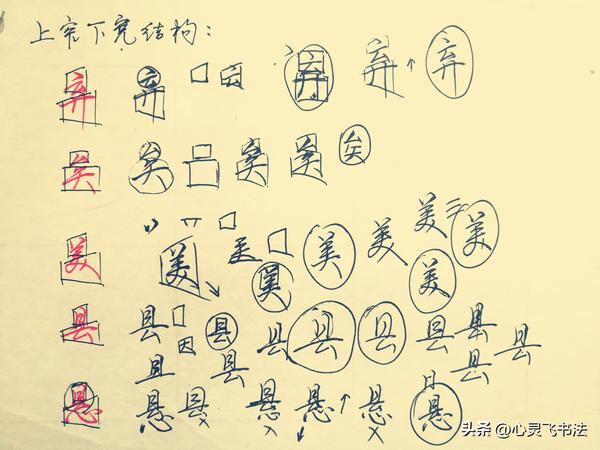 上窄下宽结构：
弃 弃 弃 弃 弃
矣 矣 矣 矣 矣
美 美 美 美 美 美 美
美 美
县 县 县 县 县 县 县 县 县
因 且 县 县
悬 悬 县 悬 悬 悬 悬
头条 @心灵飞书法